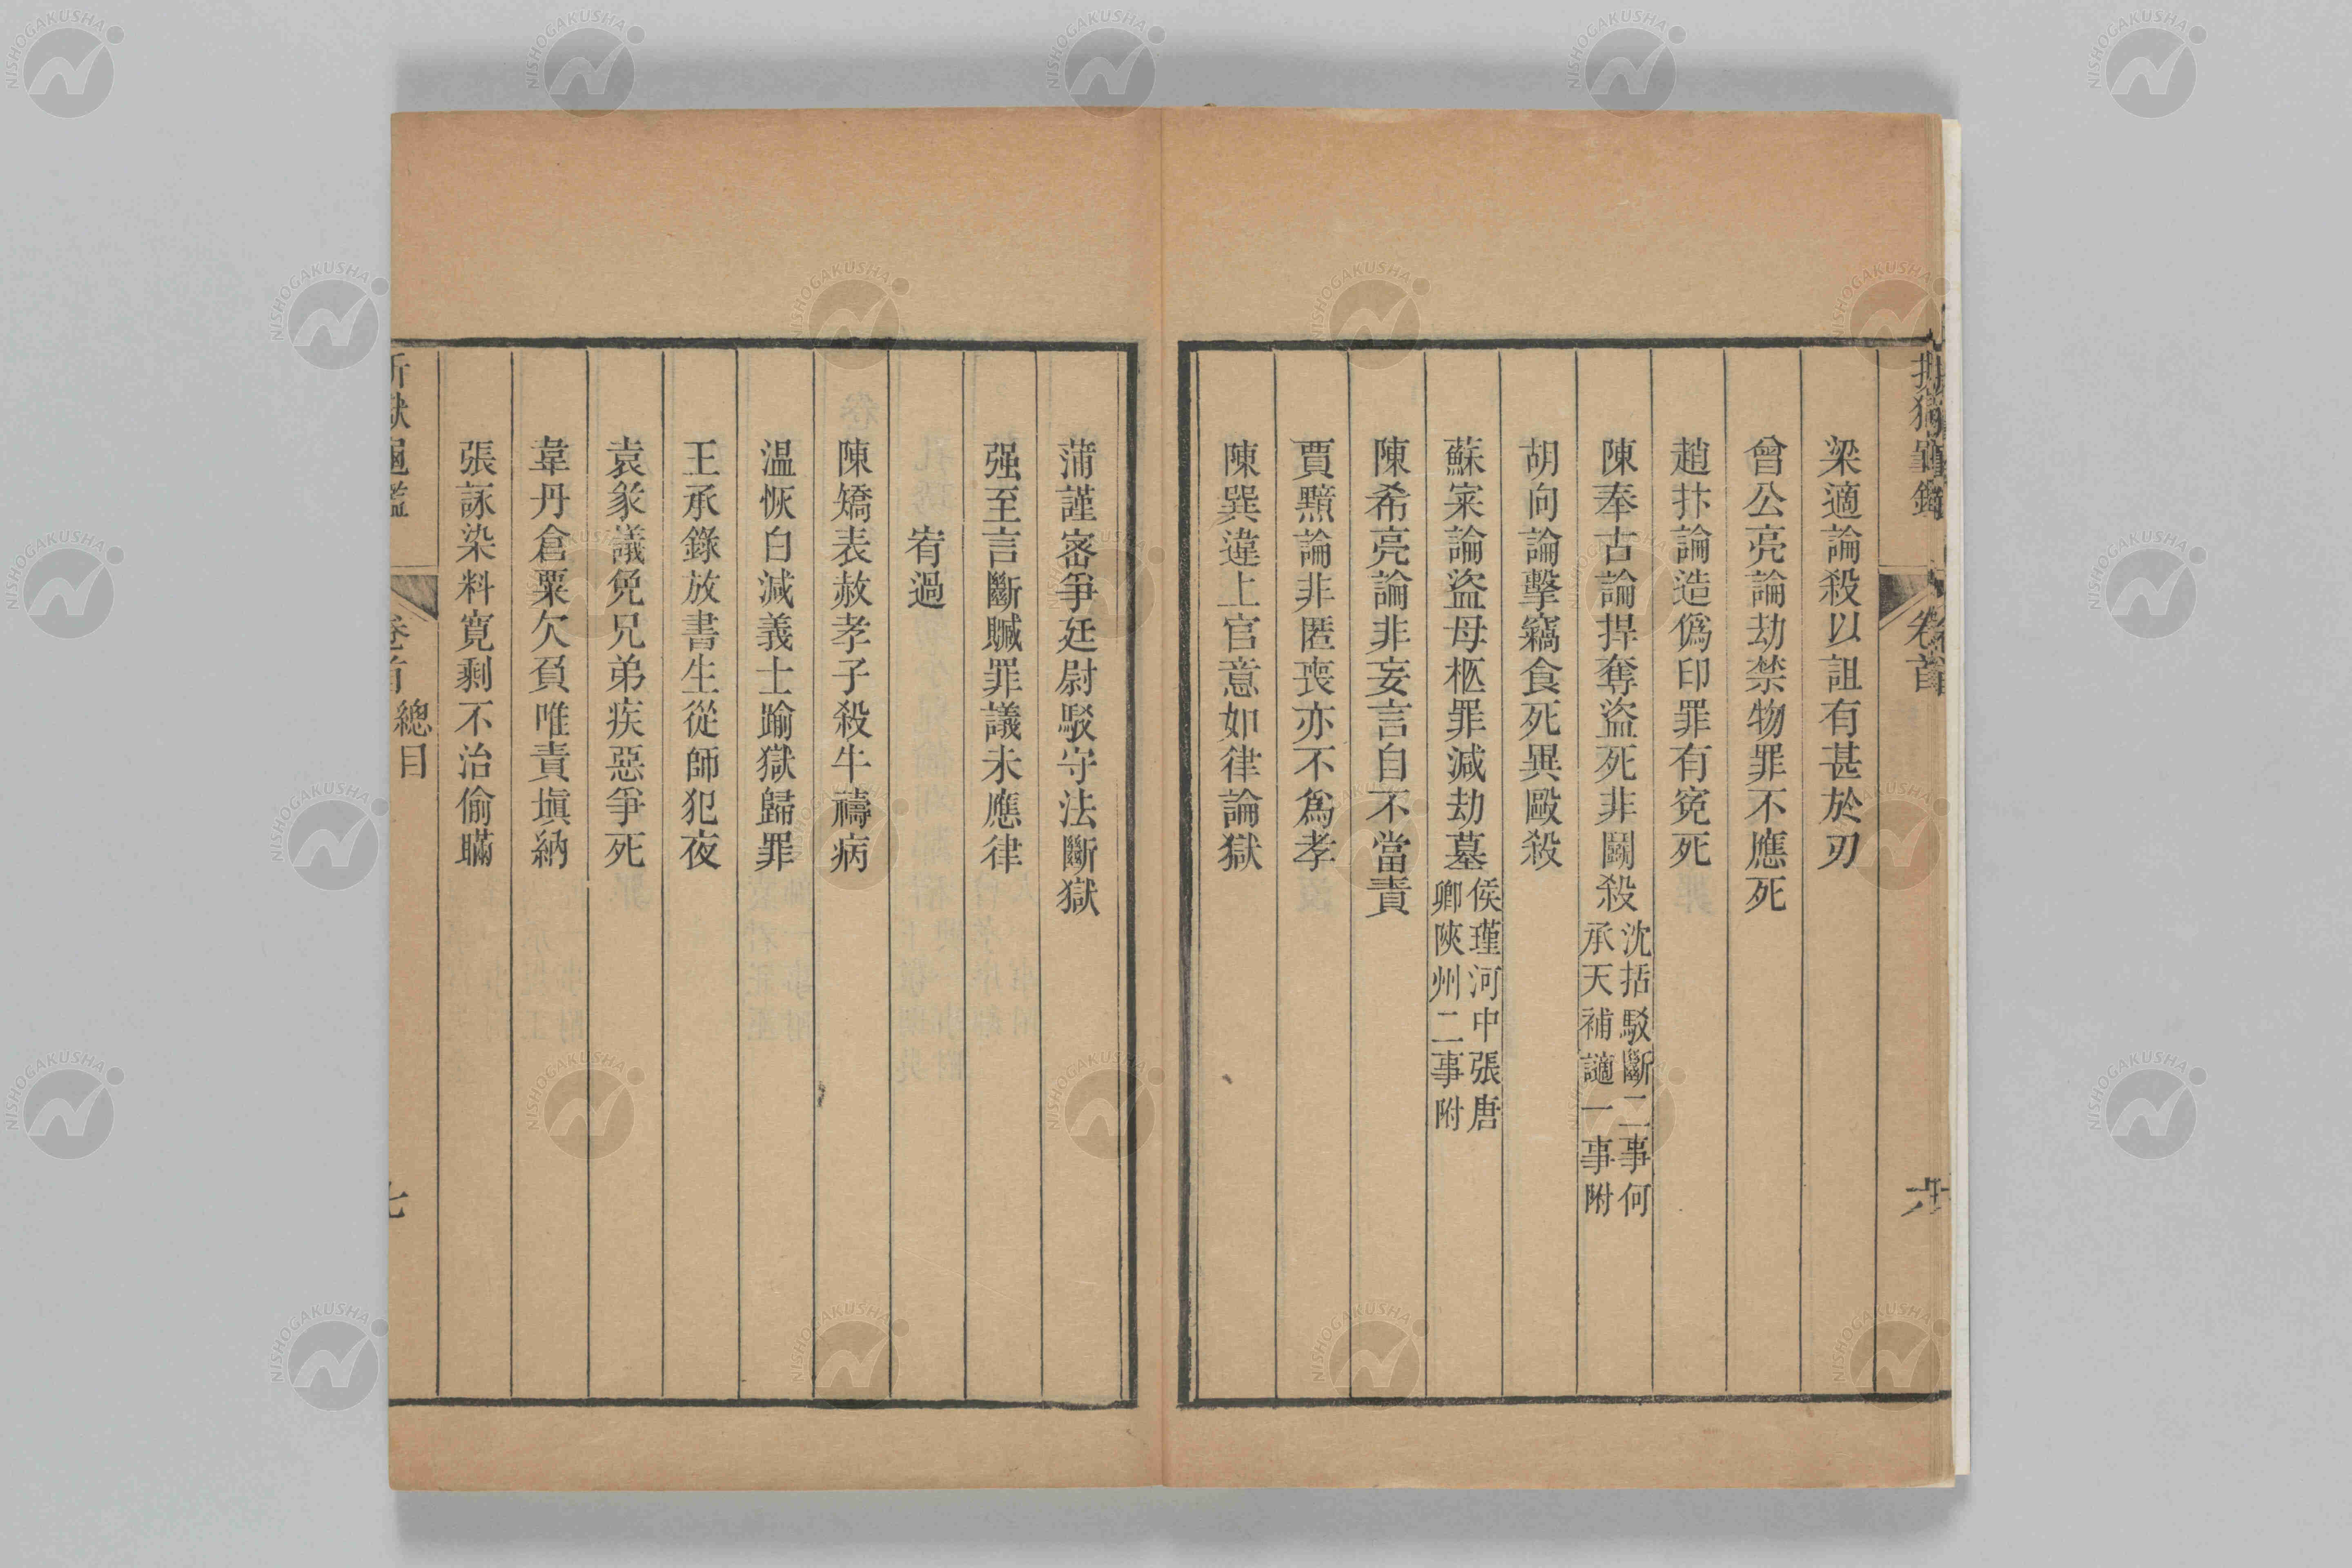 折獄龜鑑
卷首
六
梁適論殺以詛有甚於刃
曾公亮論劫禁物罪不應死
趙抃論造僞印罪有寃死
陳奉古論捍奪盜死非鬬殺沈括駁斷二事何
承天補讁一事附
胡向論擊竊食死異毆殺
蘇寀論盜母柩罪減劫墓侯瑾河中張唐
卿陝州二事附
陳希亮論非妄言自不當責
賈黯論非匿喪亦不爲孝
陳巽違上官意如律論獄
蒲謹密爭廷尉駁守法斷獄
强至言斷贓罪議未應律
宥過
陳矯表赦孝子殺牛禱病
温恢白減義士踰獄歸罪
王承錄放書生從師犯夜
袁彖議免兄弟疾惡爭死
韋丹倉粟欠負唯責塡納
張詠染料寬剩不治偷瞞
折獄龜鑑
卷首
總目
七
NISHOGAKUSHA